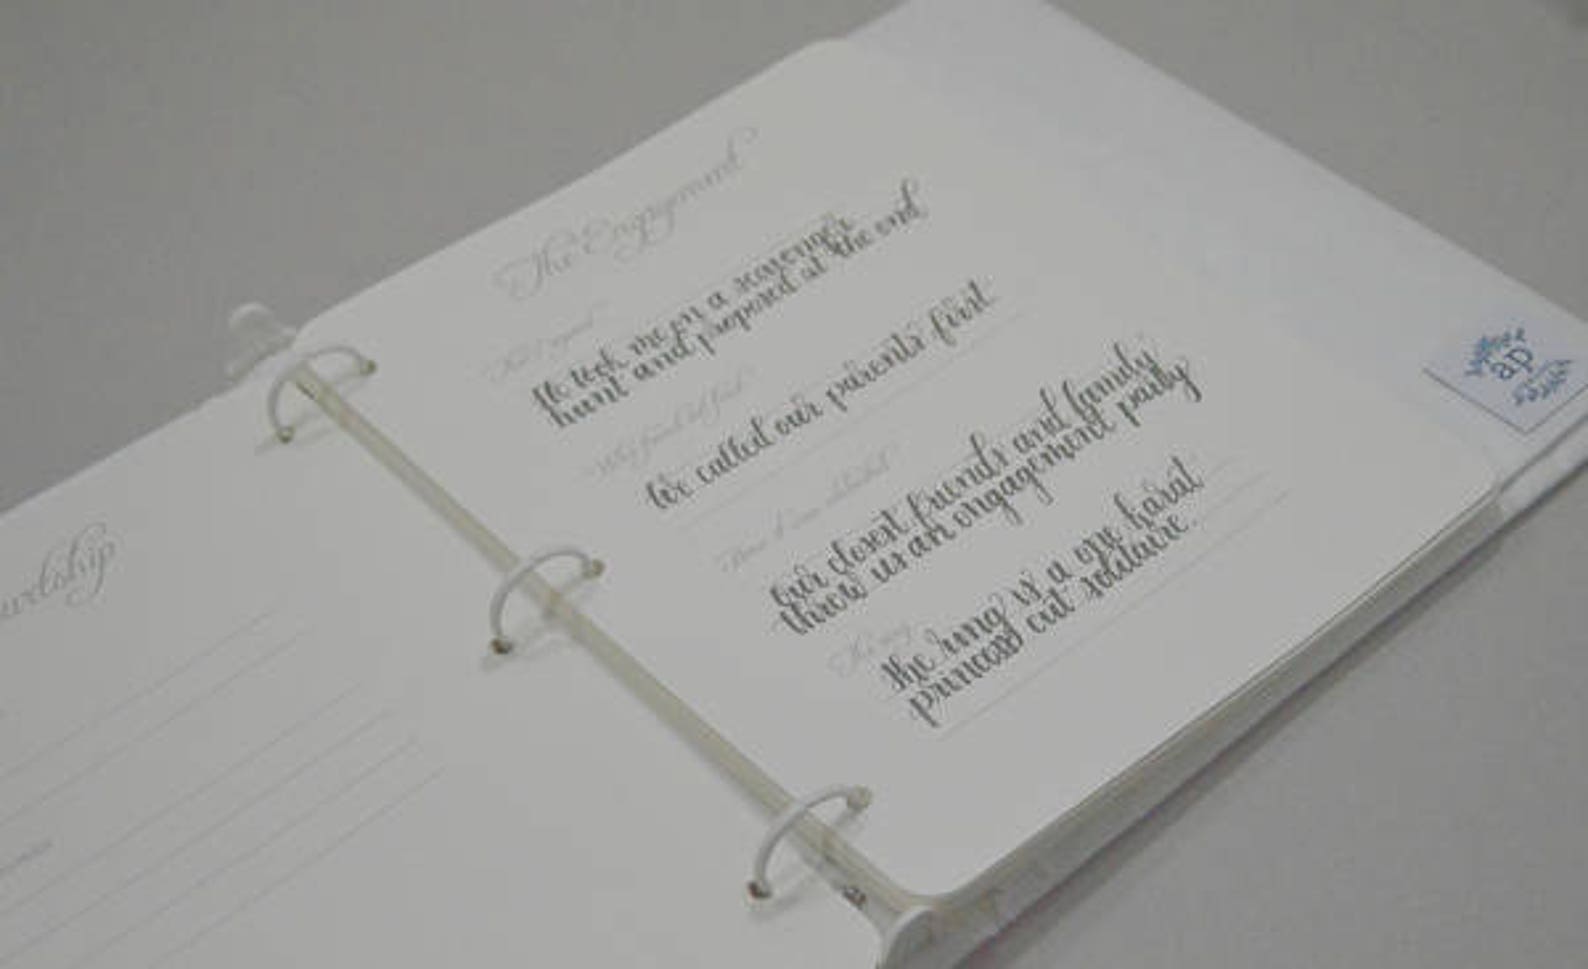 The Engagement
He took me on a scavenger
hunt and proposed at the end
Who found out first
We called our parents first.
How it was celebrated
Our closest friends and family
threw us an engagement party
The ring
the ring is a one karat
princess cut solitaire.
ap